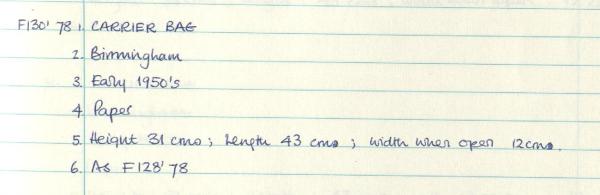 F130' 78 1. CARRIER BAG
2. Birmingham
3. Early 1950's
4. Paper
5. Height 31 cms; Length 43 cms; width when open 12cms.
6. As F128' 78